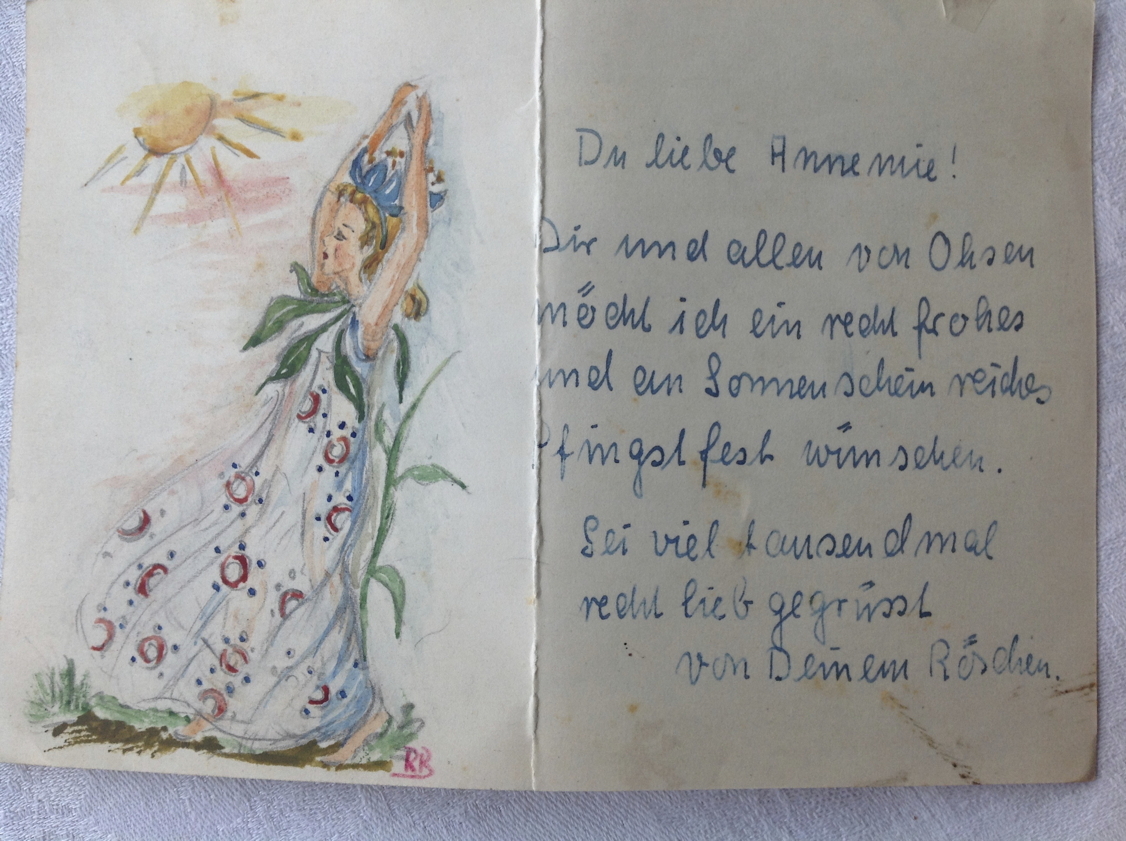 RB
Du liebe Annemie!
Dir und allen von Ohsen
möcht ich ein recht frohes
und an Sonnenschein reiches
Pfingstfest wünschen.
Sei viel tausendmal
recht lieb gegrüsst
von Deinem Röschen.